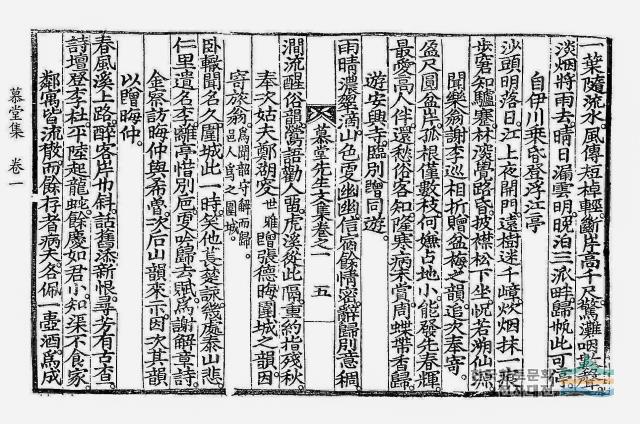 一葉隨流水。風傳短棹輕。斷岸高千尺。驚灘咽數聲。
淡烟將雨去。晴日漏雲明。晚泊三派畔。歸帆此可停。
自伊川乘昏登浮江亭
沙頭明落日。江上夜開門。遠樹迷千嶂。炊烟抹一痕。
步窘知驢蹇。林深覺路昏。披襟松下坐。怳若溯仙源。
聞樂翁謝李巡相折贈盆梅之韻追次奉寄。
盈尺圓盆片孤根僅數枝。何嫌占地小。能發先春輝。
最愛高人伴。還愁俗客知。隆寒病未賞。周蝶帶香歸。
遊安興寺。臨別贈同遊。
雨晴濃藥滴。山色更幽幽。信宿餘情密。辭歸別意稠。
慕堂先生文集卷之一 五
澗流醒俗韻。鶯語勸人留。虎溪從此隔。重約指殘秋。
奉次姑夫鄭湖叟世雅贈張德晦圍城之韻因
寄旅翁邑人爲開韶守解而歸。呼爲之圍城。
臥轍聞名久。圍城此一時。矣他萇楚詠。幾處泰山悲。
仁里遺名李。離亭惜別巵。更吟歸去賦。爲謝解章詩。
金寮訪晦仲與希魯。次后山韻來示因次其韻
以贈晦仲。
春風溪上路。醉客岸巾斜。話舊添新恨。尋芳有古査。
詩壇登李杜。平陸起龍蛇。餘慶如君小。知渠不食家。
鄰寓皆流散而餘存者病夫名佩一壺酒。爲成
慕堂集 卷一